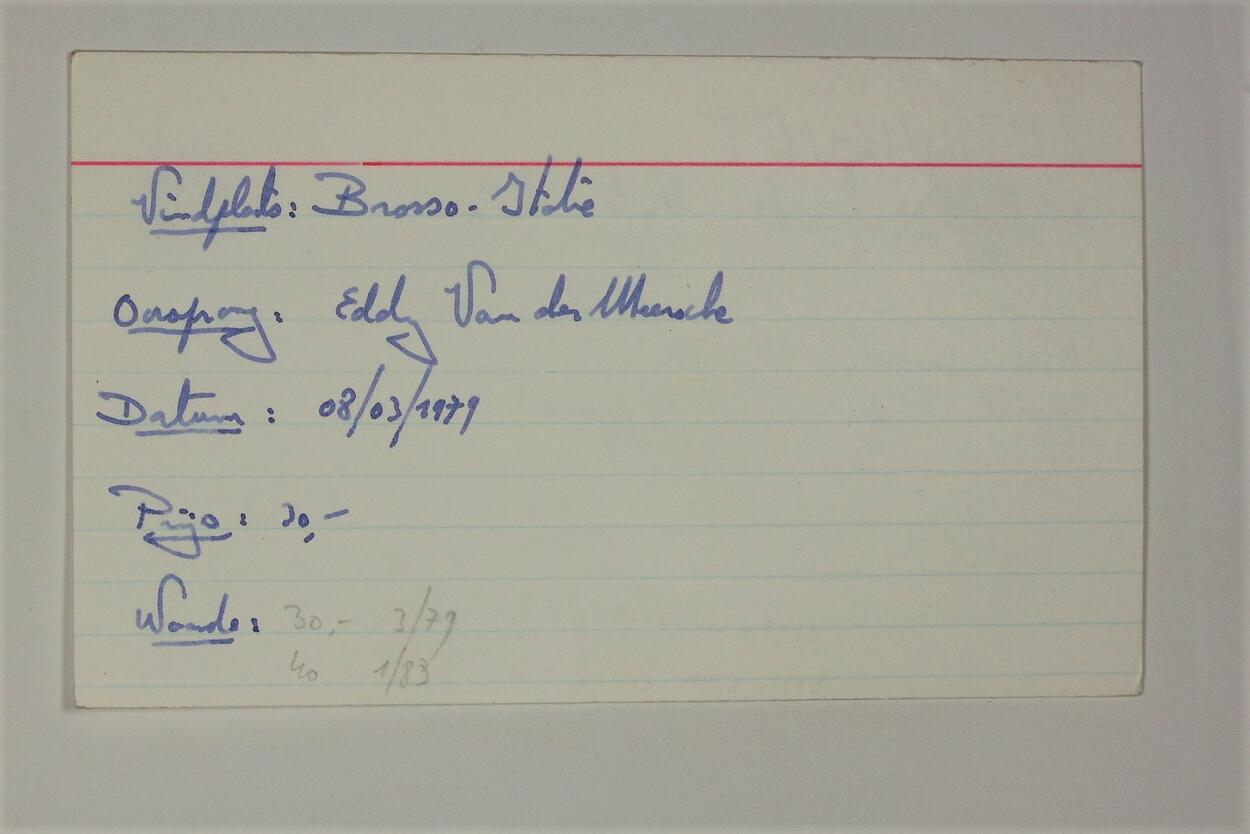 Vindplaats: Brosso - Italië
Oorsprong: Eddy Van der Meersche
Datum: 08/03/1979
Prijs: 30,-
Waarde: 30,- 3/79
40 1/83